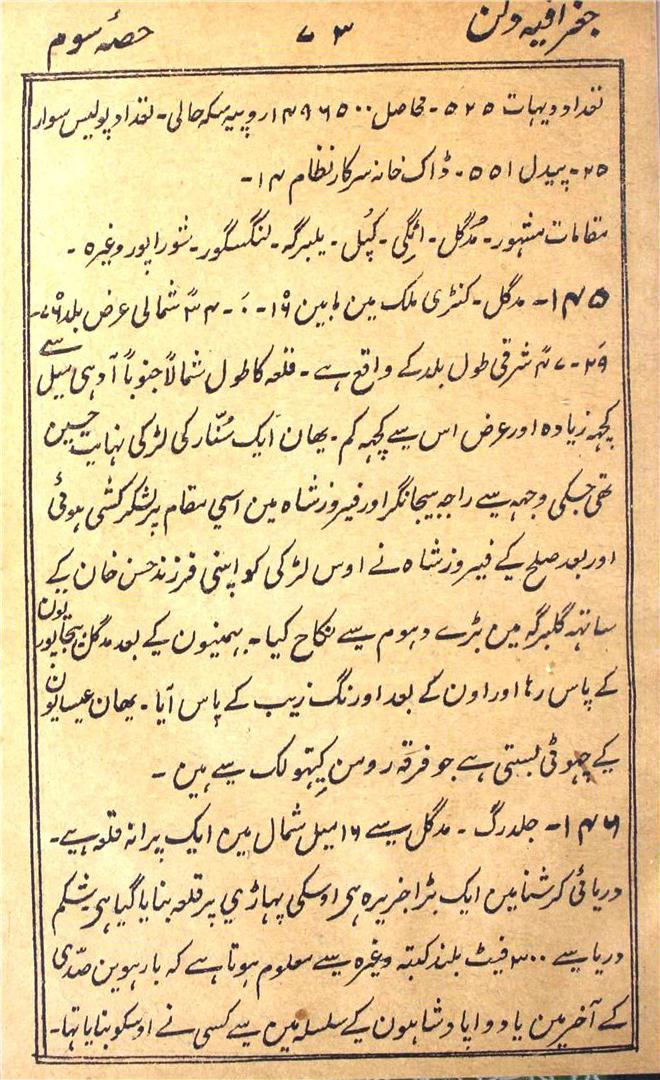 جغرافیہ دکن ۷۳ حصہ سوم
تعداد دیہات ۵۲۵ - محاصل ۱۴۹۶۵۰۰ روپیہ سکہ حالی - تعداد پولیس سوار
۲۵ - پیدل ۵۵۱ - ڈاک خانہ سرکار نظام ۱۴ -
مقامات مشہور - مُدگل - انگی - کپُل - یلبرگہ - لنگسگور - شوراپور وغیرہ -
۱۴۵ - مدگل - کنٹری ملک مین مابین ۱۶ - ۰ - ۴۳ شمالی عرض بلد ۷۶
۲۹ - ۴۷ شرقی طول بلد کے واقع ہے - قلعہ کا طول شمالاً جنوباً آدہی میل سے
کچہہ زیادہ اور عرض اس سے کچہہ کم - یھان ایک سُنّار کی لڑکی نہایت حسین
تھی جسکی وجہہ سے راجہ بیجانگر اور فیروز شاہ مین اسی مقام پر لشکر کشی ہوئی
اور بعد صلح کے فیروز شاہ نے اوس لڑکی کو اپنی فرزند حسن خان کے
ساتہہ گلبرگہ مین بڑے دہوم سے نکاح کیا - بہمنیون کے بعد مدگل بیجاپوریون
کے پاس رہا اور اون کے بعد اورنگ زیب کے پاس آیا - یھان عیسایون
کے چھوٹی بستی ہے جو فرقہ رومن کیتھولک سے ہین -
۱۴۶ - جلدرگ - مدگل سے ۱۶ میل شمال مین ایک پرانہ قلعہ ہے -
دریائی کرشنا مین ایک بڑا جزیرہ ہی اوسکی پہاڑی پر قلعہ بنایا گیا ہی شکم
دریا سے ۳۰۰ فیٹ بلند کتبہ وغیرہ سے معلوم ہوتا ہے کہ بارہوین صدی
کے آخر مین یادوا بادشاہون کے سلسلہ مین سے کسی نے اوسکو بنایا تہا -